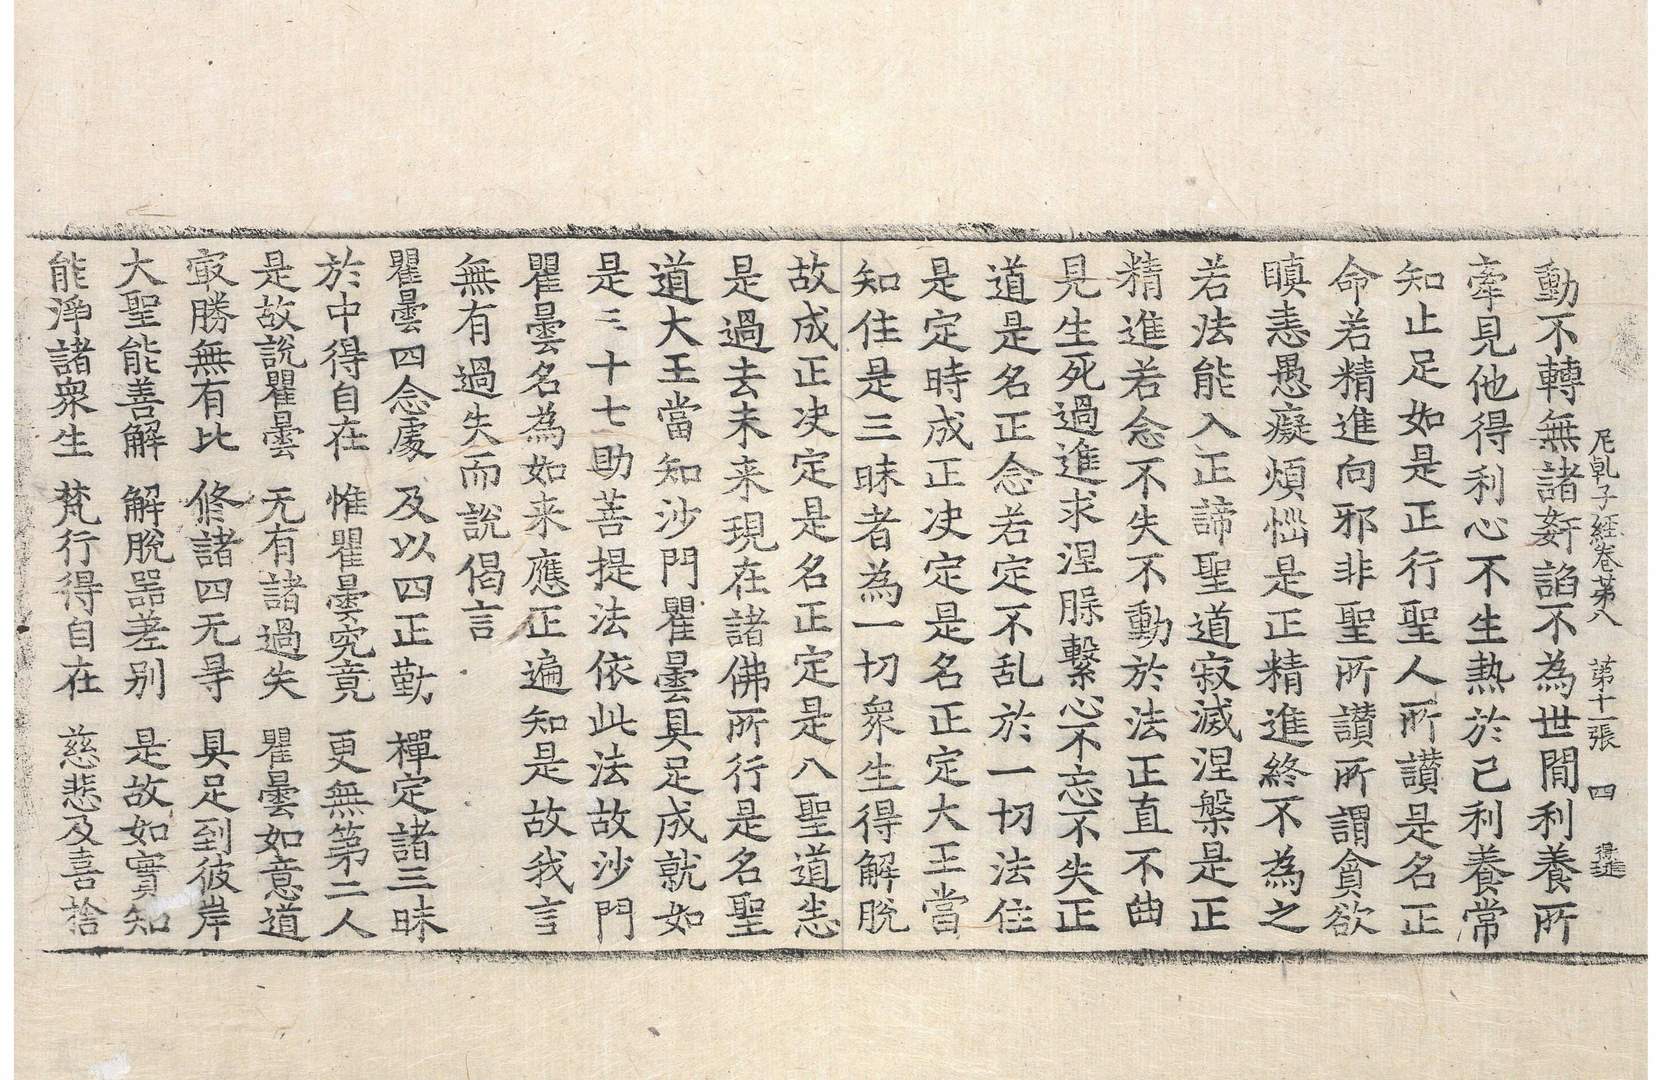 尼乹子経卷苐八　第十一張　四　得進
動不轉無諸姧諂不為世間利養所
牽見他得利心不生熱於己利養常
知止足如是正行聖人所讃是名正
命若精進向邪非聖所讃所謂貪欲
瞋恚愚癡煩惱是正精進終不為之
若法能入正諦聖道寂滅涅槃是正
精進若念不失不動於法正直不曲
見生死過進求涅槃繫心不忘不失正
道是名正念若定不乱於一切法住
是定時成正决定是名正定大王當
知住是三昧者為一切衆生得解脫
故成正决定是名正定是八聖道悲
是過去未来現在諸佛所行是名聖
道大王當知沙門瞿曇具足成就如
是三十七助菩提法依此法故沙門
瞿曇名為如来應正遍知是故我言
無有過失而說偈言
瞿曇四念處　及以四正勤　禪定諸三昧
於中得自在　惟瞿曇究竟　更無第二人
是故說瞿曇　无有諸過失　瞿曇如意道
㝡勝無有比　修諸四无㝵　具足到彼岸
大聖能善解　解脫器差别　是故如實知
能淨諸衆生　梵行得自在　慈悲及喜捨